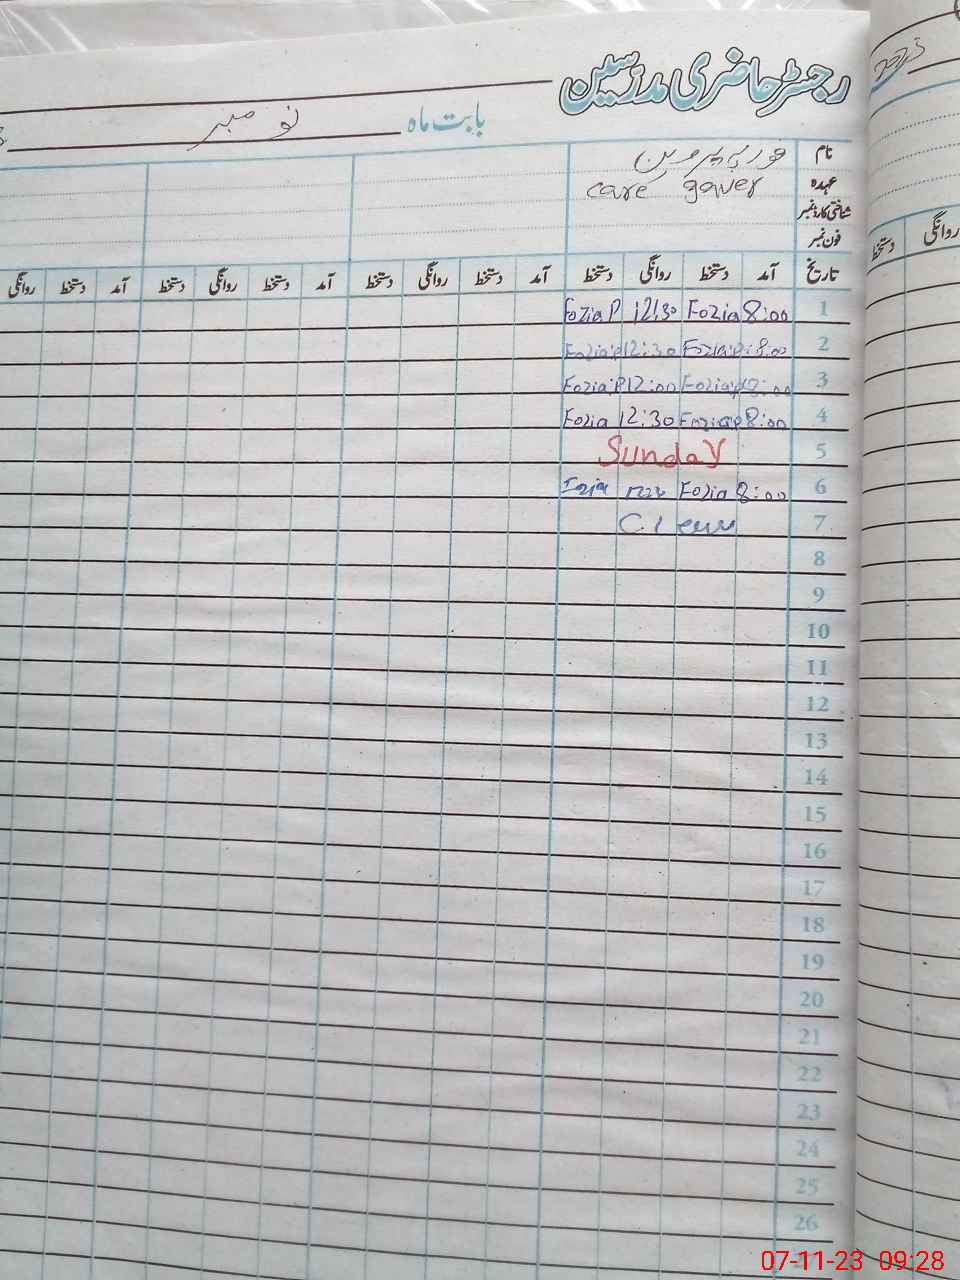 رجسٹر حاضری مدرسین
بابت ماہ نومبر
نام فوزیہ پروین
عہدہ care gaver
شناختی کارڈ نمبر
فون نمبر
تاریخ آمد دستخط روانگی دستخط آمد دستخط روانگی دستخط آمد دستخط روانگی دستخط آمد دستخط روانگی
1 8:00 Fozia 12:30 Fozia P
2 8:00 Fozia:P 12:30 Fozia:P
3 8:00 Fozia:P 12:00 Fozia:P
4 8:00 Fozia:P 12:30 Fozia
5 Sunday
6 8:00 Fozia Fozia
7
8
9
10
11
12
13
14
15
16
17
18
19
20
21
22
23
24
25
26
روانگی دستخط
07-11-23 09:28